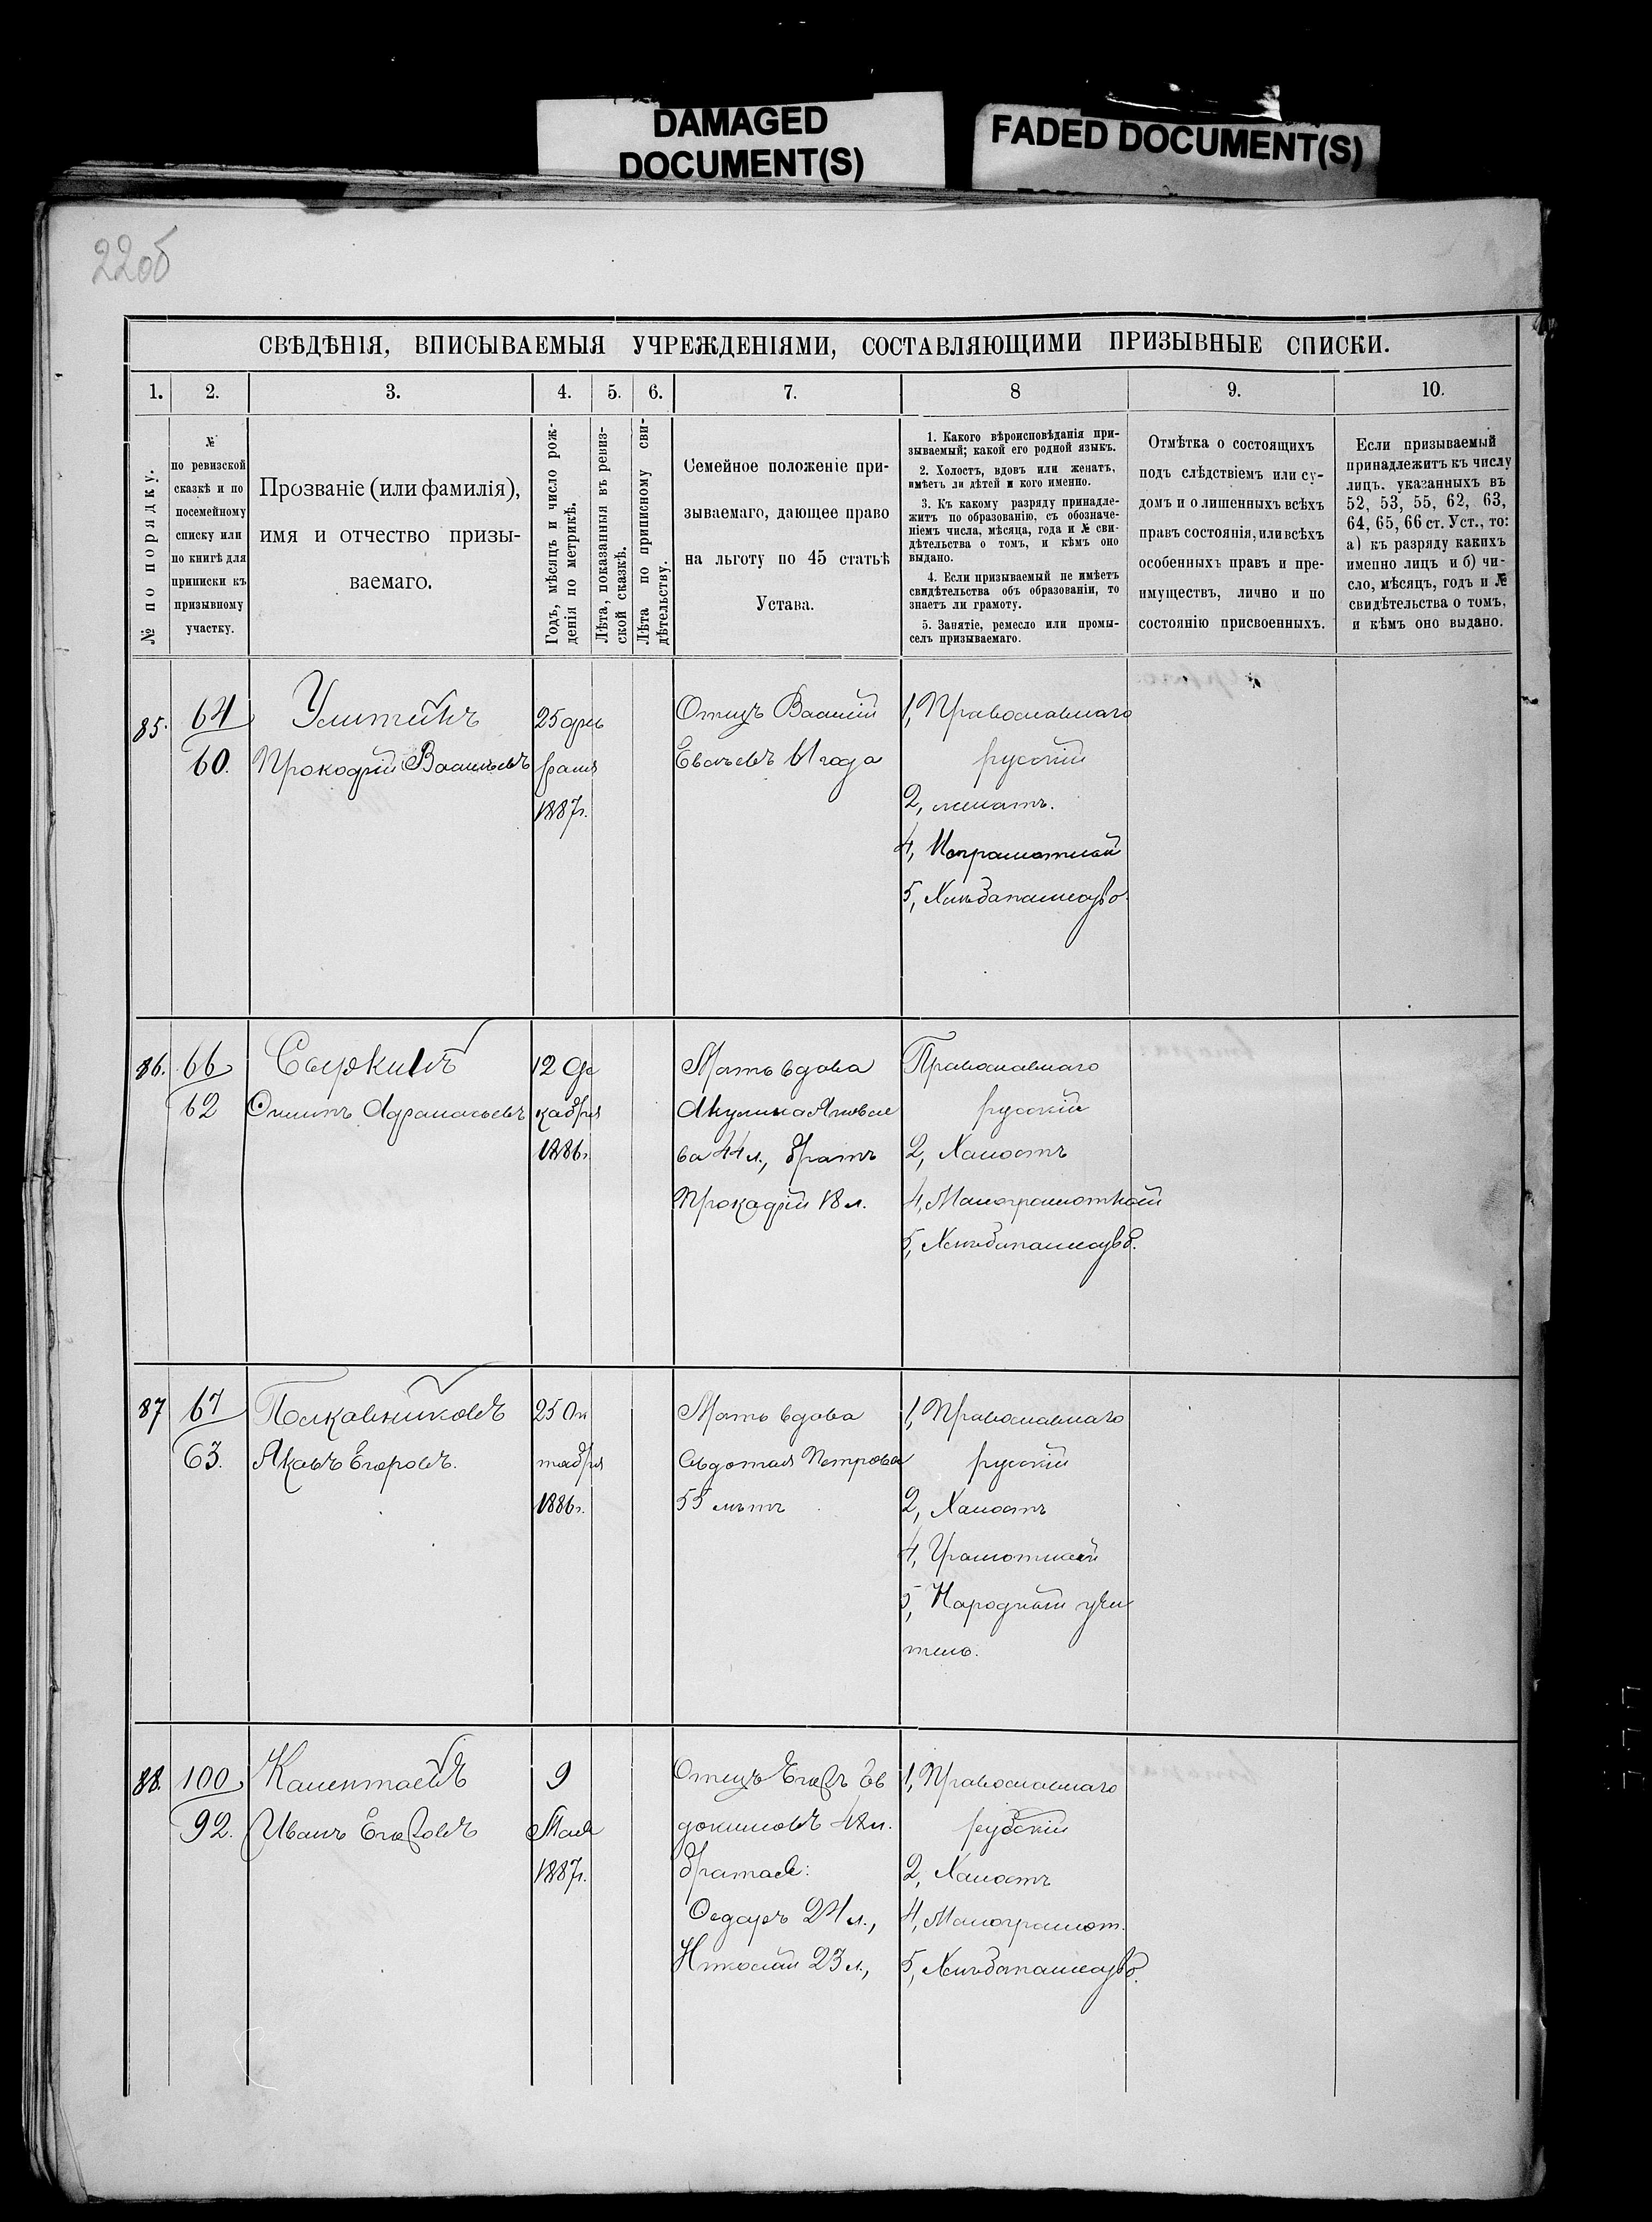 DAMAGED
DOCUMENT(S)
FADED DOCUMENT(S)
22об
СВѢДѢНІЯ, ВПИСЫВАЕМЫЯ УЧРЕЖДЕНІЯМИ, СОСТАВЛЯЮЩИМИ ПРИЗЫВНЫЕ СПИСКИ.
1. 2. 3. 4. 5. 6. 7. 8 9. 10.
№ по порядку.
№
по ревизской
сказкѣ и по
посемейному
списку или
по книгѣ для
приписки къ
призывному
участку.
Прозваніе (или фамилія),
имя и отчество призы-
ваемаго.
Годъ, мѣсяцъ и число рож-
денія по метрикѣ.
Лѣта, показанныя въ ревиз-
ской сказкѣ.
Лѣта по приписному сви-
дѣтельству.
Семейное положеніе при-
зываемаго, дающее право
на льготу по 45 статьѣ
Устава.
1. Какого вѣроисповѣданія при-
зываемый; какой его родной языкъ.
2. Холостъ, вдовъ или женатъ,
имѣетъ ли дѣтей и кого именно.
3. Къ какому разряду принадле-
житъ по образованію, съ обозначе-
ніемъ числа, мѣсяца, года и № сви-
дѣтельства о томъ, и кѣмъ оно
выдано.
4. Если призываемый не имѣетъ
свидѣтельства объ образованіи, то
знаетъ ли грамоту.
5. Занятіе, ремесло или промы-
селъ призываемаго.
Отмѣтка о состоящихъ
подъ слѣдствіемъ или су-
домъ и о лишенныхъ всѣхъ
правъ состоянія, или всѣхъ
особенныхъ правъ и пре-
имуществъ, лично и по
состоянію присвоенныхъ.
Если призываемый
принадлежитъ къ числу
лицъ, указанныхъ въ
52, 53, 55, 62, 63,
64, 65, 66 ст. Уст., то:
а) къ разряду какихъ
именно лицъ и б) чи-
сло, мѣсяцъ, годъ и №
свидѣтельства о томъ,
и кѣмъ оно выдано.
85.
64
60.
Улитинъ
Прокофій Васильевъ
25 фев
раля
1887г.
Отецъ Василій
61 года
1, Православнаго
русскій
2, женатъ.
4, Неграмотной
5, Хлѣбапашество.
86.
66
62
Сыркинъ
Осипъ Афанасьевъ
12 де
кабря
1886г.
Мать вдова
Акулина Яковле
ва 44 л., братъ
Прокафій 18 л.
Православнаго
русскій
2, Халостъ
4, Малограмотной
5, Хлѣбапашество.
87
67
63.
Палкавниковъ
Якавъ Егоровъ.
25 Ок
тября
1886г.
Мать вдова
Авдотья Петрова
55 лѣтъ
1, Православнаго
русскій
2, Халостъ
4, Грамотной
5, Народный учи
тель.
88.
100
92.
Калентаевъ
Иванъ Егоровъ
9
Мая
1887г.
Отецъ Егоръ Ев
докимовъ л.
братья:
Федаръ 24 л.,
Николай 23 л.,
1, Православнаго
русскій
2, Халостъ
4, Малограмот.
5, Хлѣбапашество.